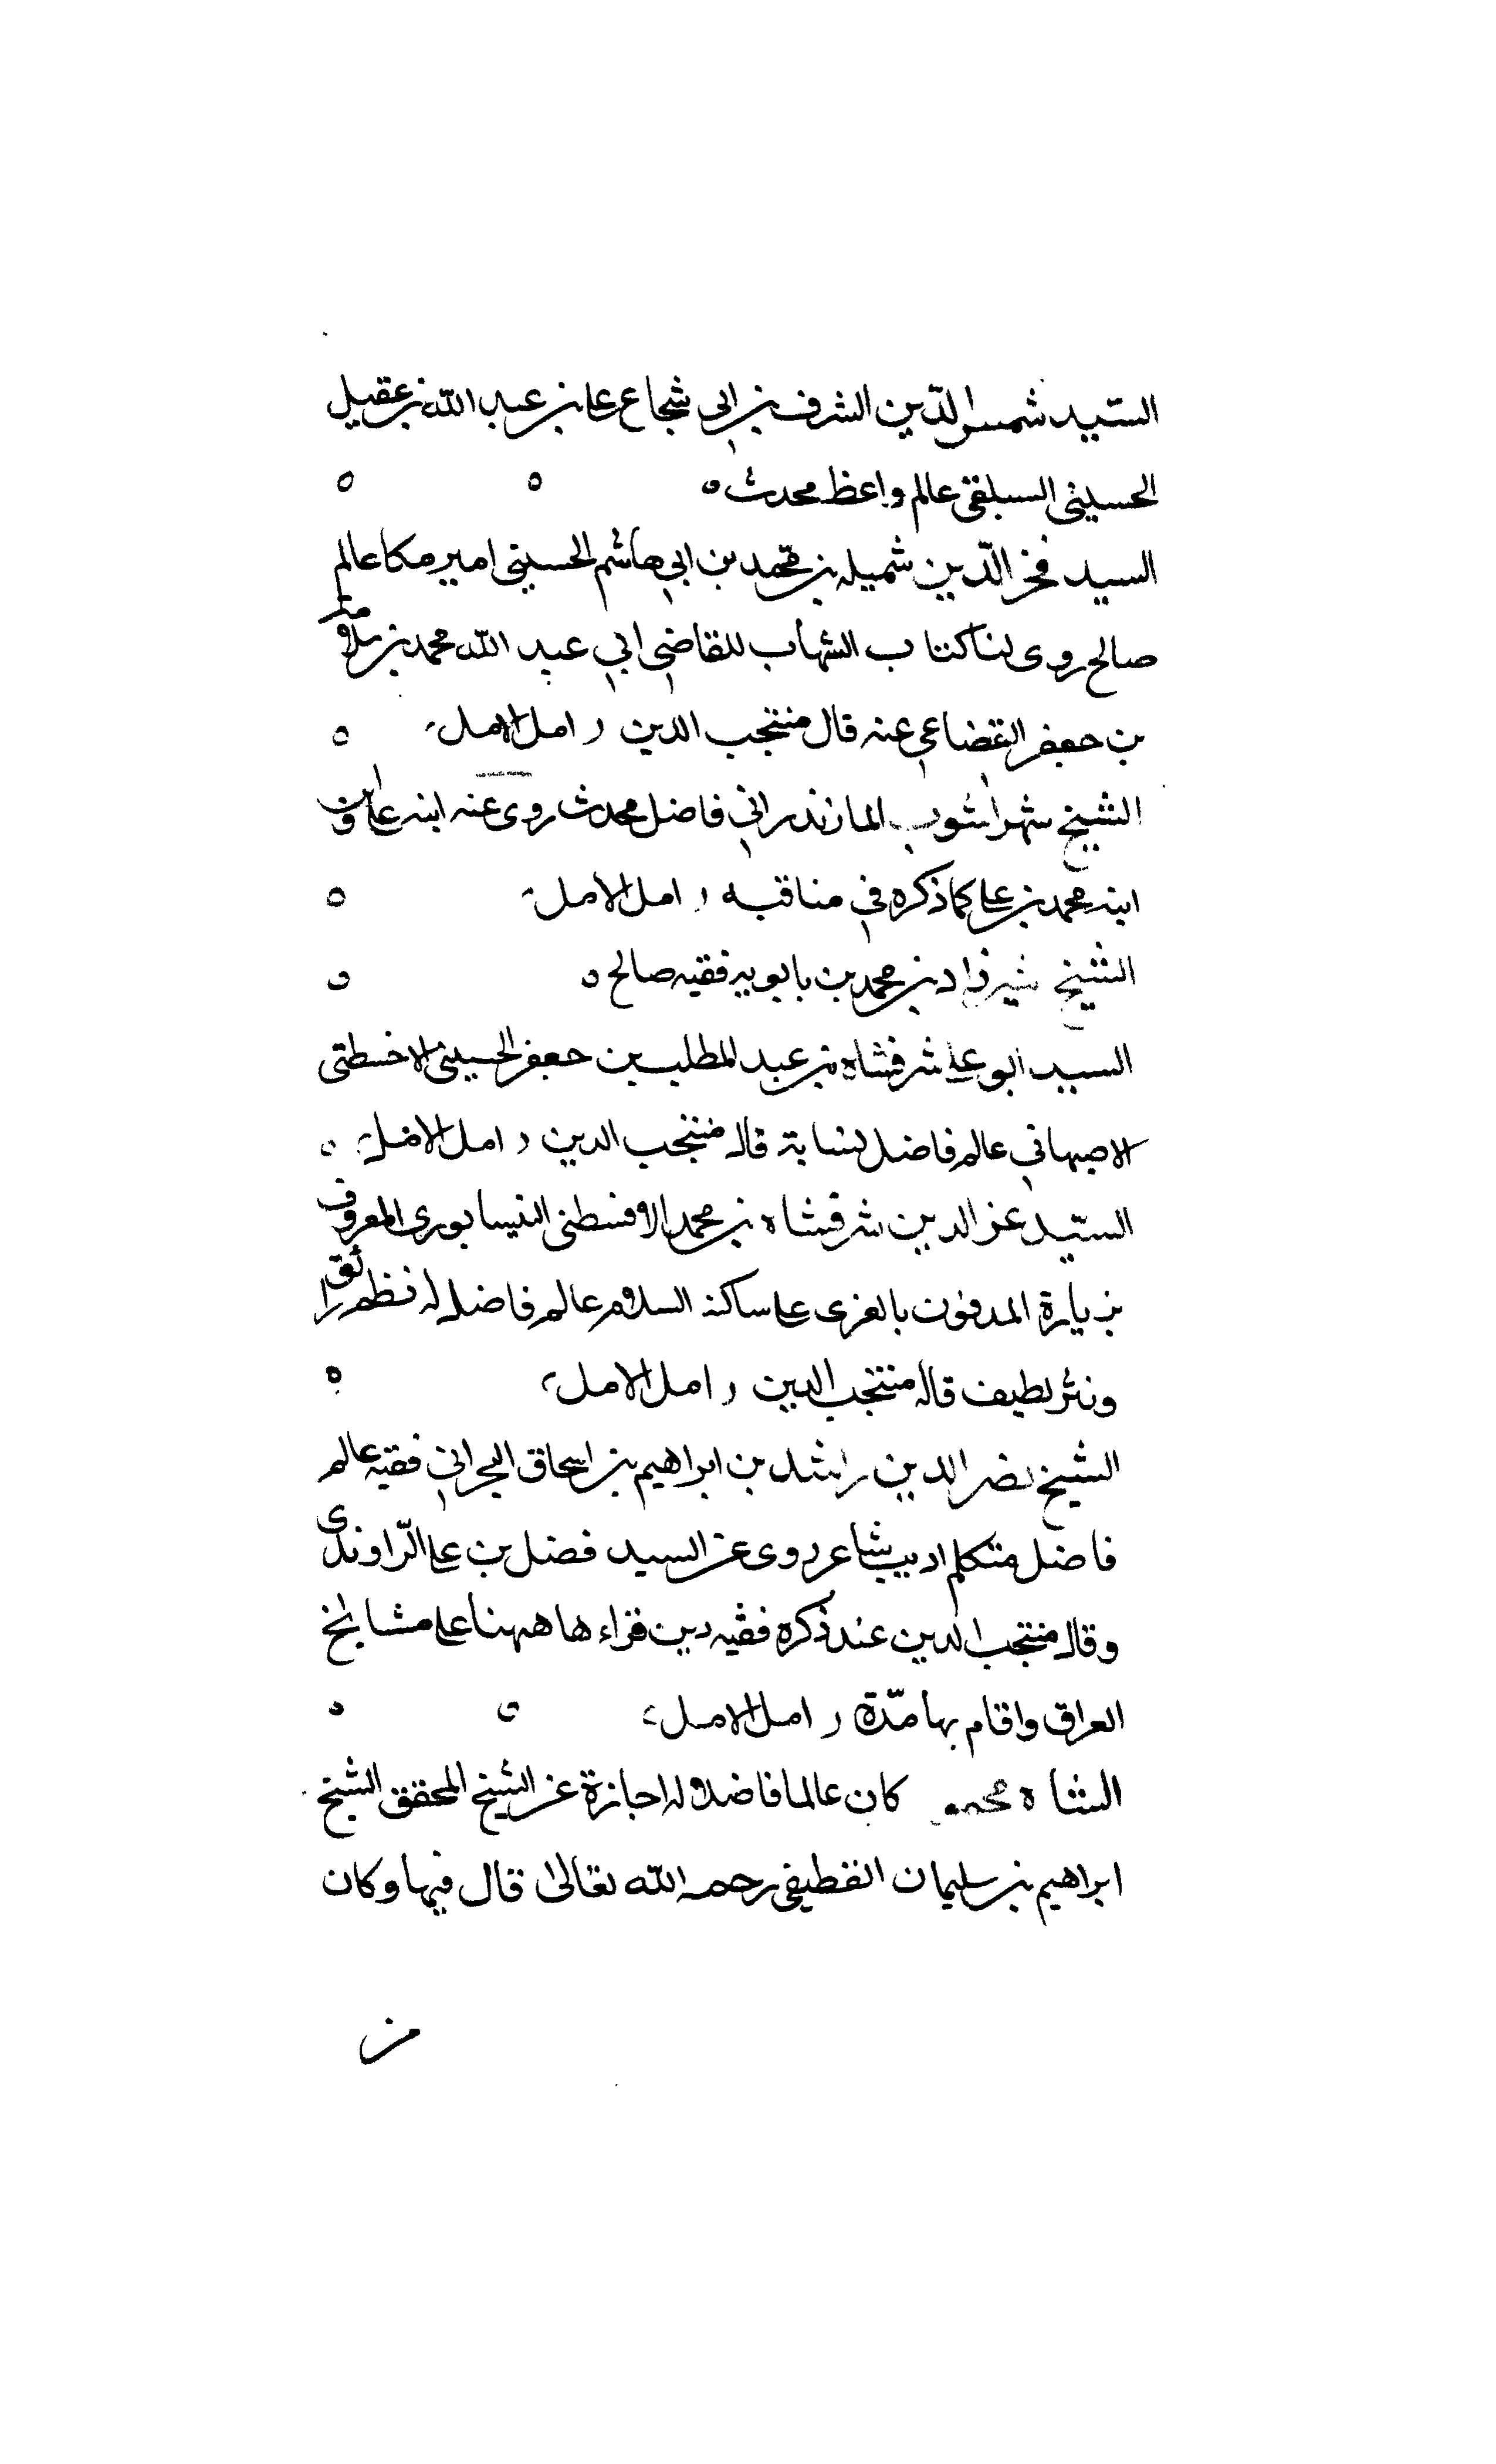 السّيد شمس الدّين الشرف بن ابى شجاع على بن عبد الله بن عقيل
الحسينى السيلقى عالم واعظ محدث ه
السيد فخر الدّين شميله بن محمّد بن ابى هاشم الحسينى امير مكا عالم
صالح روى لنا كتاب الشهاب للقاضى ابى عبد الله محمد بن سلامة
بن جعفر القضاعى عنه قال منتجب الدين ر امل الامل
الشيخ شهراشوب المازندرانى فاضل محدث روى عنه ابنه على وابن
ابنه محمد بن على كما ذكره فى مناقبه ر امل الامل
الشيخ شيرزاد بن محمد بن بابويه فقيه صالح ه
السيد ابو على شرفشاه بن عبد المطلب بن جعفر الحسينى الافسطى
الاصبهانى عالم فاضل نسابة قاله منتجب الدين ر امل الامل
السّيد عز الدين شرفشاه بن محمد الافسطى النيسابورى المعروف
بزيارة المدفون بالغرى على ساكنه السلام عالم فاضل له نظم رائق
ونثر لطيف قاله منتجب الدين ر امل الامل
الشيخ نصر الدين راشد بن ابراهيم بن اسحاق البحرانى فقيه عالم
فاضل متكلم اديب شاعر روى عن السيد فضل بن على الرّاوندى
وقال منتجب الدين عند ذكره فقيه دين قراء ها ههنا على مشايخ
العراق واقام بها مدّة ر امل الامل
الشاه محمود كان عالما فاضلا له اجازة عن الشيخ المحقق الشيخ
ابراهيم بن سليمان القطيفى رحمه الله تعالى قال فيها وكان
من